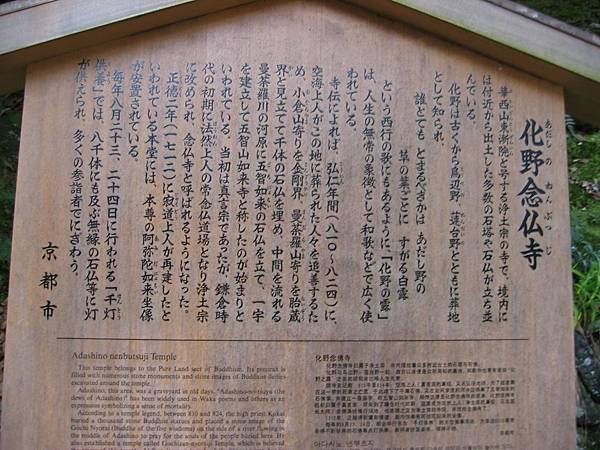 化野念仏寺
あだしの ねんぶつじ
華西山東漸院と号する浄土宗の寺で、境内に
は付近から出土した多数の石塔や石仏が立ち並
んでいる。
化野は古くから鳥辺野、蓮台野とともに葬地
として知られ、
誰とても とまるべきかは あだし野の
草の葉ごとに すがる白露
という西行の歌にもあるように、「化野の露」
は、人生の無常の象徴として和歌などで広く使
われている。
寺伝によれば、弘仁年間(八一〇〜八二四)に、
空海上人がこの地に葬られた人々を追善するた
め、小倉山寄りを金剛界、曼荼羅山寄りを胎蔵
界と見立てて千体の石仏を埋め、中間を流れる
曼荼羅川の河原に五智如来の石仏を立て、一宇
を建立して五智山如来寺と称したのが始まりと
いわれている。当初は真言宗であったが、鎌倉時
代の初期に法然上人の常念仏道場となり浄土宗
に改められ、念仏寺と呼ばれるようになった。
正徳二年(一七一二)に寂道上人が再建したと
いわれている本堂には、本尊の阿弥陀如来坐像
が安置されている。
毎年八月二十三、二十四日に行われる「千灯
供養」では、八千体にも及ぶ無縁の石仏等に灯
が供えられ、多くの参詣者でにぎわう。
京都市
Adashino nenbutsuji Temple
This temple belongs to the Pure Land sect of Buddhism. Its precinct is
filled with numerous stone monuments and stone images of Buddhist deities
excavated around the temple.
Adashino, this area, was a graveyard in old days. "Adashino-no-tsuyu (the
dews of Adashino)" has been widely used in Waka poems and others as an
expression symbolizing a sense of mortality.
According to a temple legend, between 810 and 824, the high priest Kukai
buried a thousand stone Buddhist statues and placed a stone image of the
Gochi Nyorai (Buddha of the five wisdoms) on the side of a river flowing in
the middle of Adashino to pray for the souls of the people buried here. He
also established a temple called Gochizan-nyoraiji Temple, which is believed
化野念佛寺
아다시노 넨부츠지